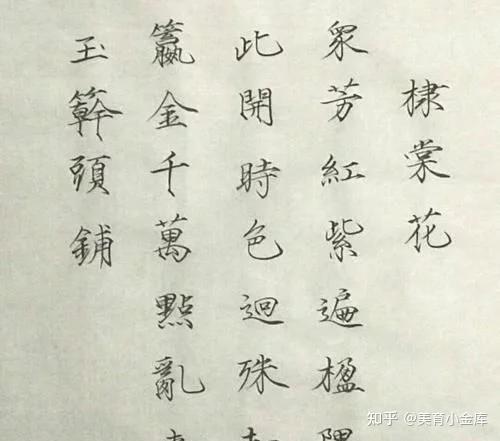 棣棠花
衆芳紅紫遍楹
此開時色迴殊
籯金千萬點亂
玉簳頭鋪
知乎 @美育小金库